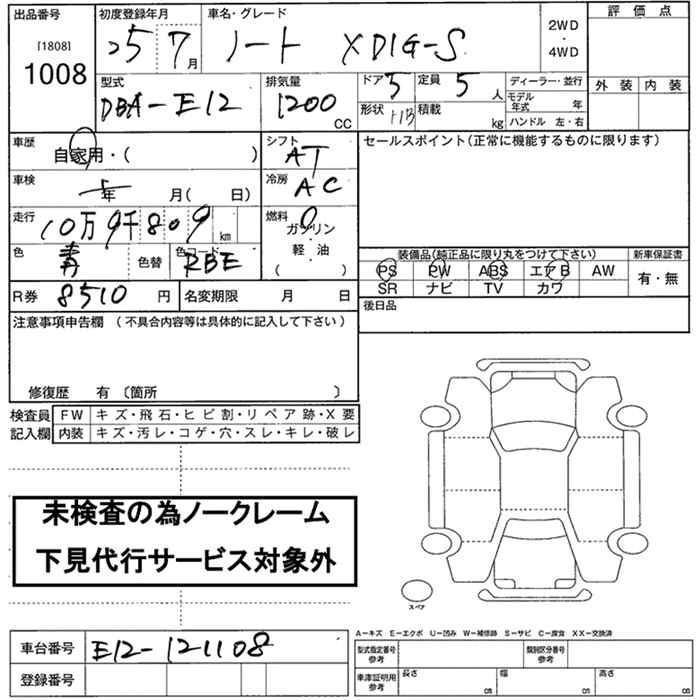 出品番号 初度登録年月 車名・グレード 評価点
[1808] 1008 25 7月 ノート X DIG-S 2WD・4WD
型式 排気量 ドア 定員 ディーラー・並行 外装 内装
DBA-E12 1200 CC 5 5人 モデル年式 年
形状 HB 積載 kg ハンドル 左・右
車歴 自家用・( ) シフト AT セールスポイント(正常に機能するものに限ります)
車検 年 月( 日) 冷房 AC
走行 10万9千809 km 燃料 ガソリン・軽・油 ( )
色 青 色替 色コード RBE 装備品(純正品に限り丸をつけて下さい) 新車保証書
PS PW ABS エアB AW 有・無
SR ナビ TV カワ
R券 8510 円 名変期限 月 日 後日品
注意事項申告欄 (不具合内容等は具体的に記入して下さい)
修復歴 有 〔箇所 〕
検査員 FW キズ・飛石・ヒビ割・リペア跡・X要
記入欄 内装 キズ・汚レ・コゲ・穴・スレ・キレ・破レ
未検査の為ノークレーム
下見代行サービス対象外
スペア
A-キズ E-エクボ U-凹み W-補修跡 S-サビ C-腐食 XX-交換済
車台番号 E12-121108 型式指定番号 参考 類別区分番号 参考
登録番号 車庫証明用 参考 長さ cm 幅 cm 高さ cm